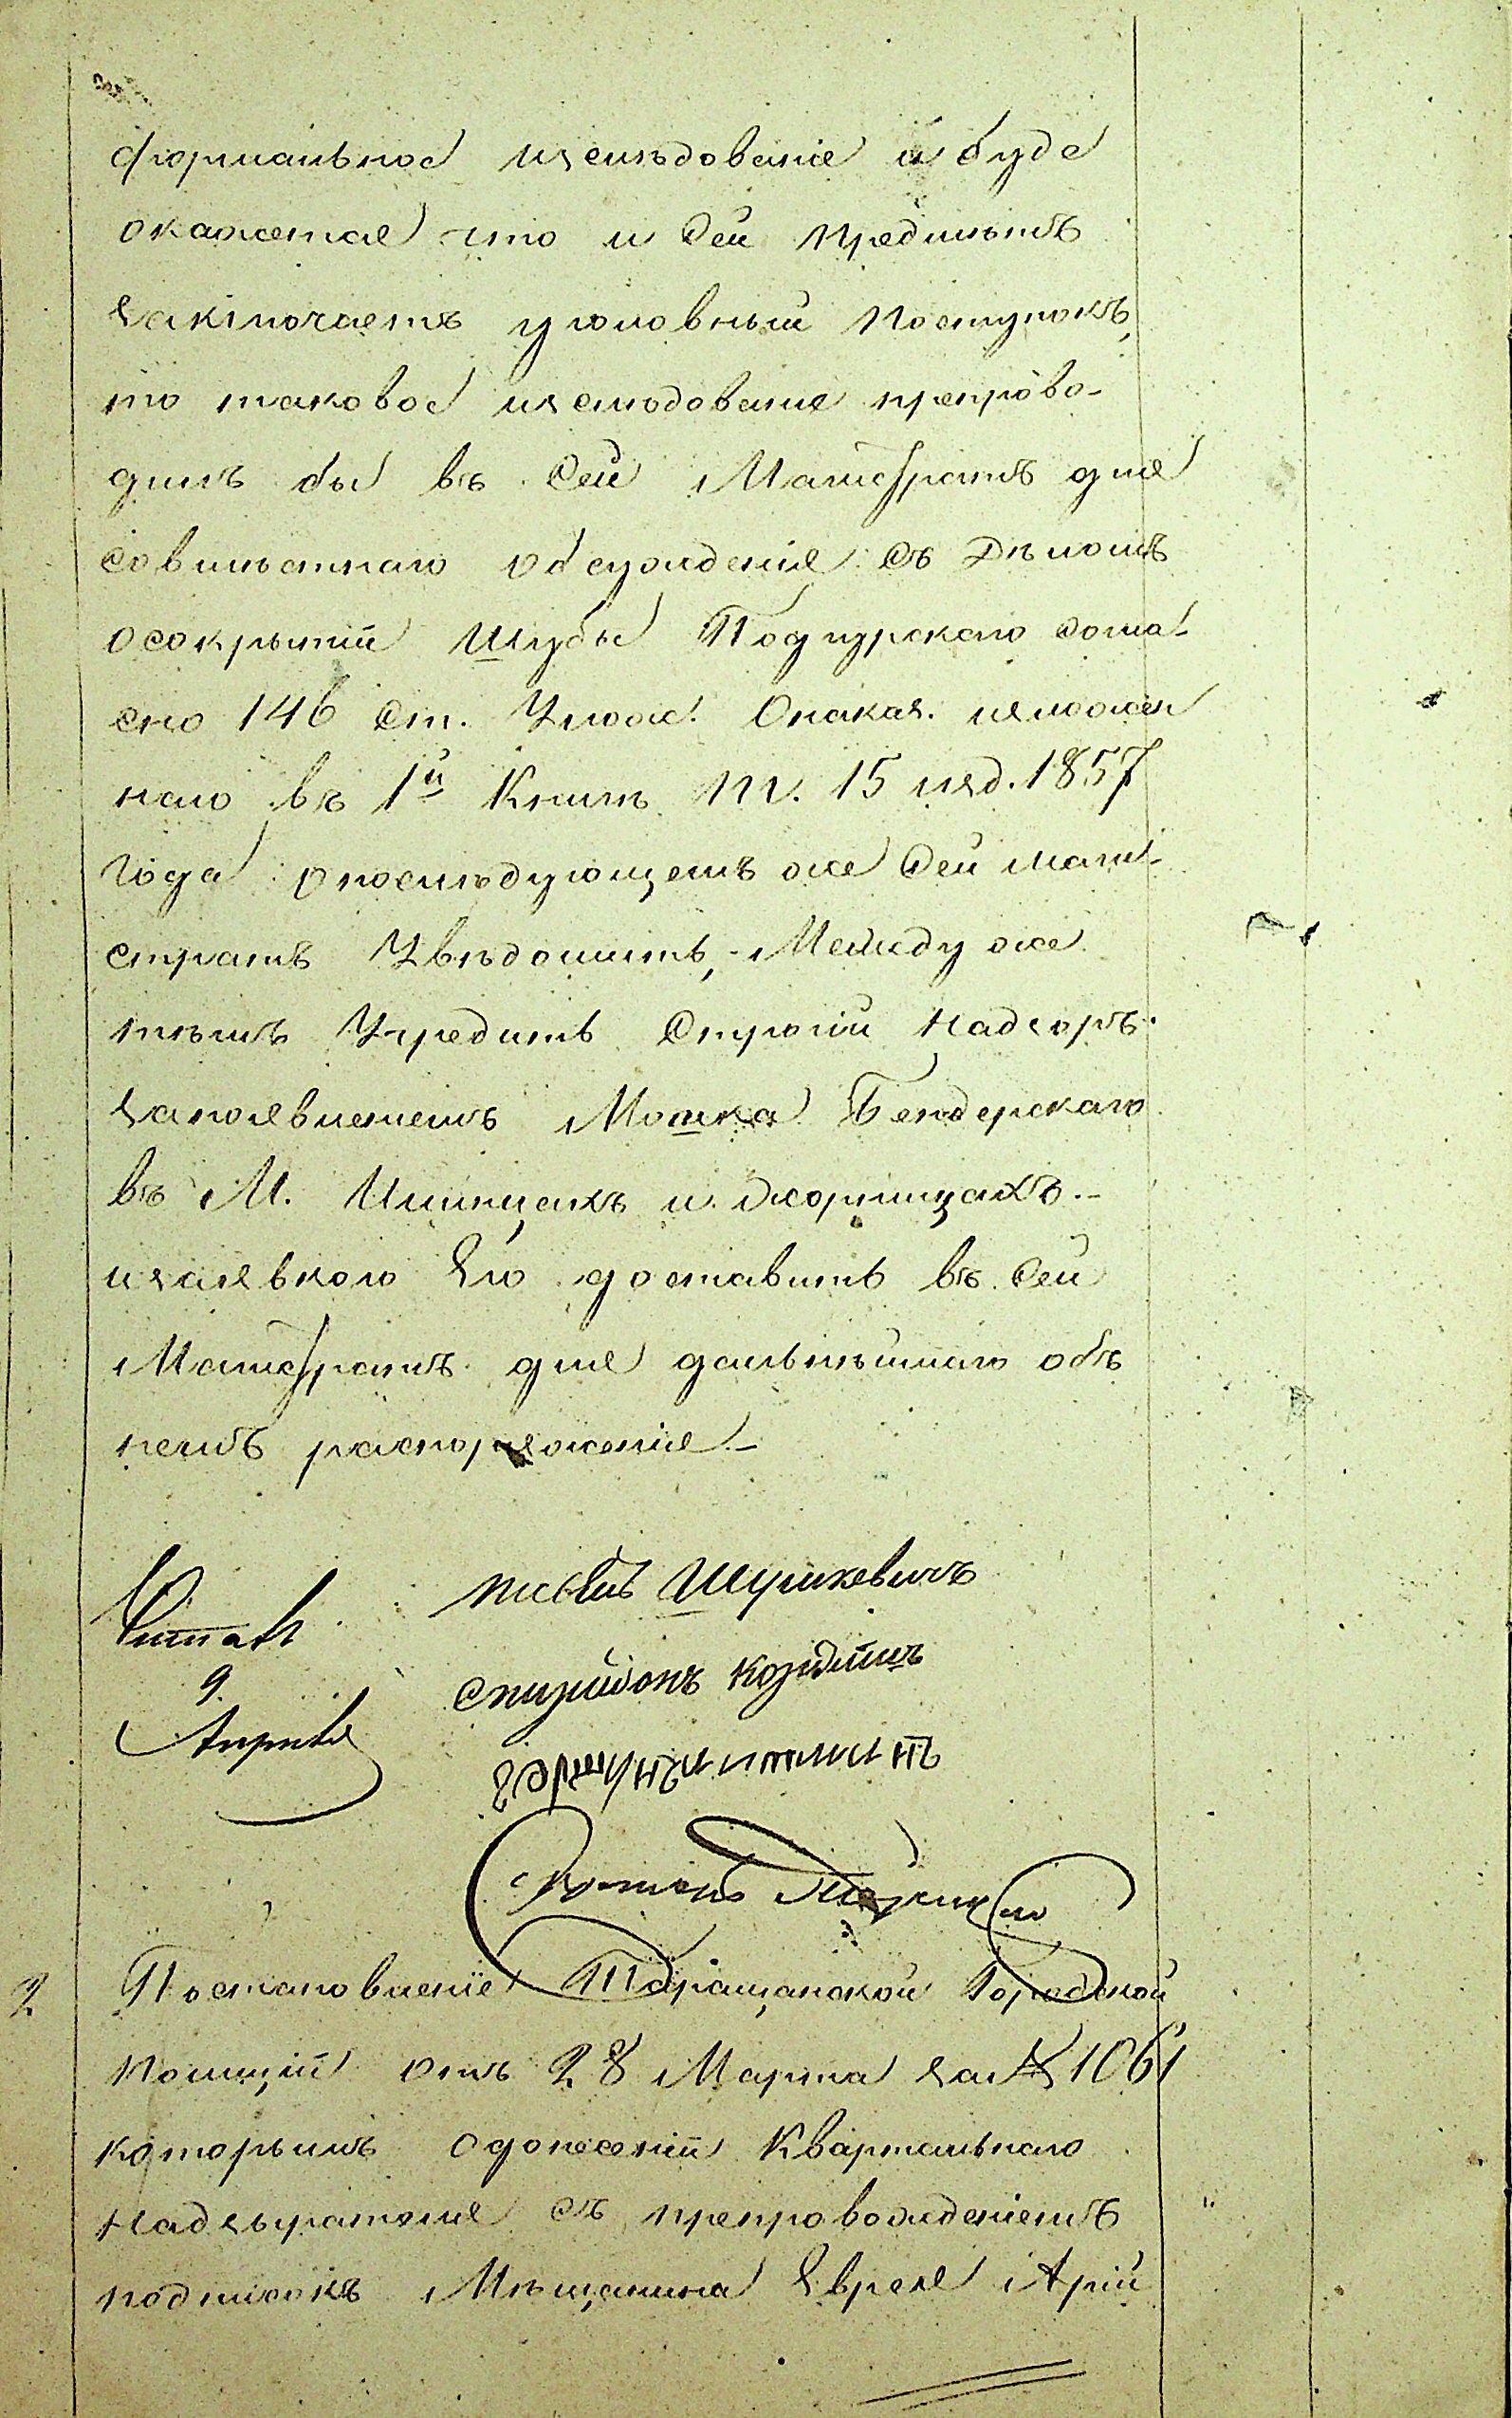 формальное изслѣдованіе и буде
окажется что и сей предмѣтъ
заключаетъ уголовный поступокъ,
то таковое изслѣдованіе препрово-
дилъ бы въ сей Магистратъ для
совмѣстнаго обсужденія съ Дѣломъ
осокрытіи Шубы Подгурского согла-
сно 146 ст. Улож. Онаказ. изложен
наго въ 1й Книгѣ т. 15 изд. 1857
года опослѣдующемъ же сей маги-
стратъ Увѣдомить, Между же
тѣмъ Учредить Строгій надзоръ
запоявленіемъ Мошка Бендерскаго
въ М. Иминцахъ и Жорницахъ.-
изаявкою Его доставить въ сей
Магистратъ для дальнѣйшаго объ
немъ распоряженія.-
Читалъ Шушкевичъ
9. Спиридонъ
Апрѣля
2 Постановленіе Таращанской Городской
Полиціи отъ 28 Марта за № 1061
которымъ одонесеніи Квартальнаго
Надзирателя съ препровожденіемъ
подписокъ Мѣщанина Еврея Арій